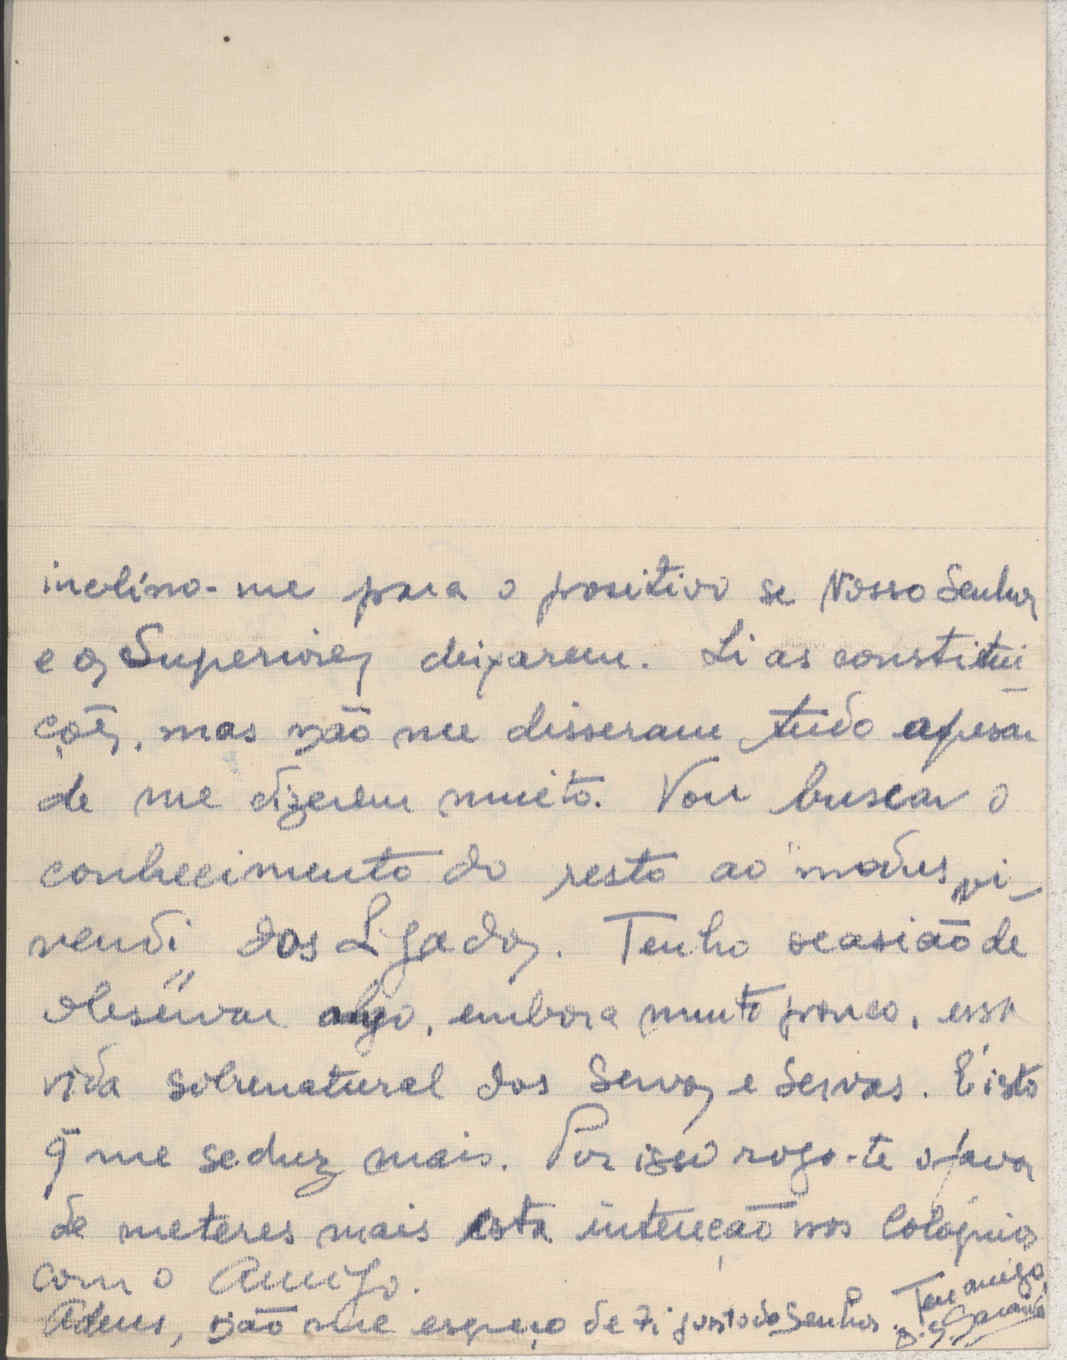 inclino-me para o positivo se Nosso Senhor
e os Superiores deixarem. Li as constitui
ções, mas não me disseram tudo apesar
de me dizerem muito. Vou buscar o
conhecimento do resto ao "modus vi-
vendi" dos Ligados. Tenho ocasião de
observar algo, embora muito pouco, essa
vida sobrenatural dos Servos e Servas. É isto
q̃ me seduz mais. Por isso rogo-te o favor
de meteres mais esta intenção nos Colóquios
com o Amigo.
Adeus, não me esqueço de Ti junto do Senhor. Teu amigo